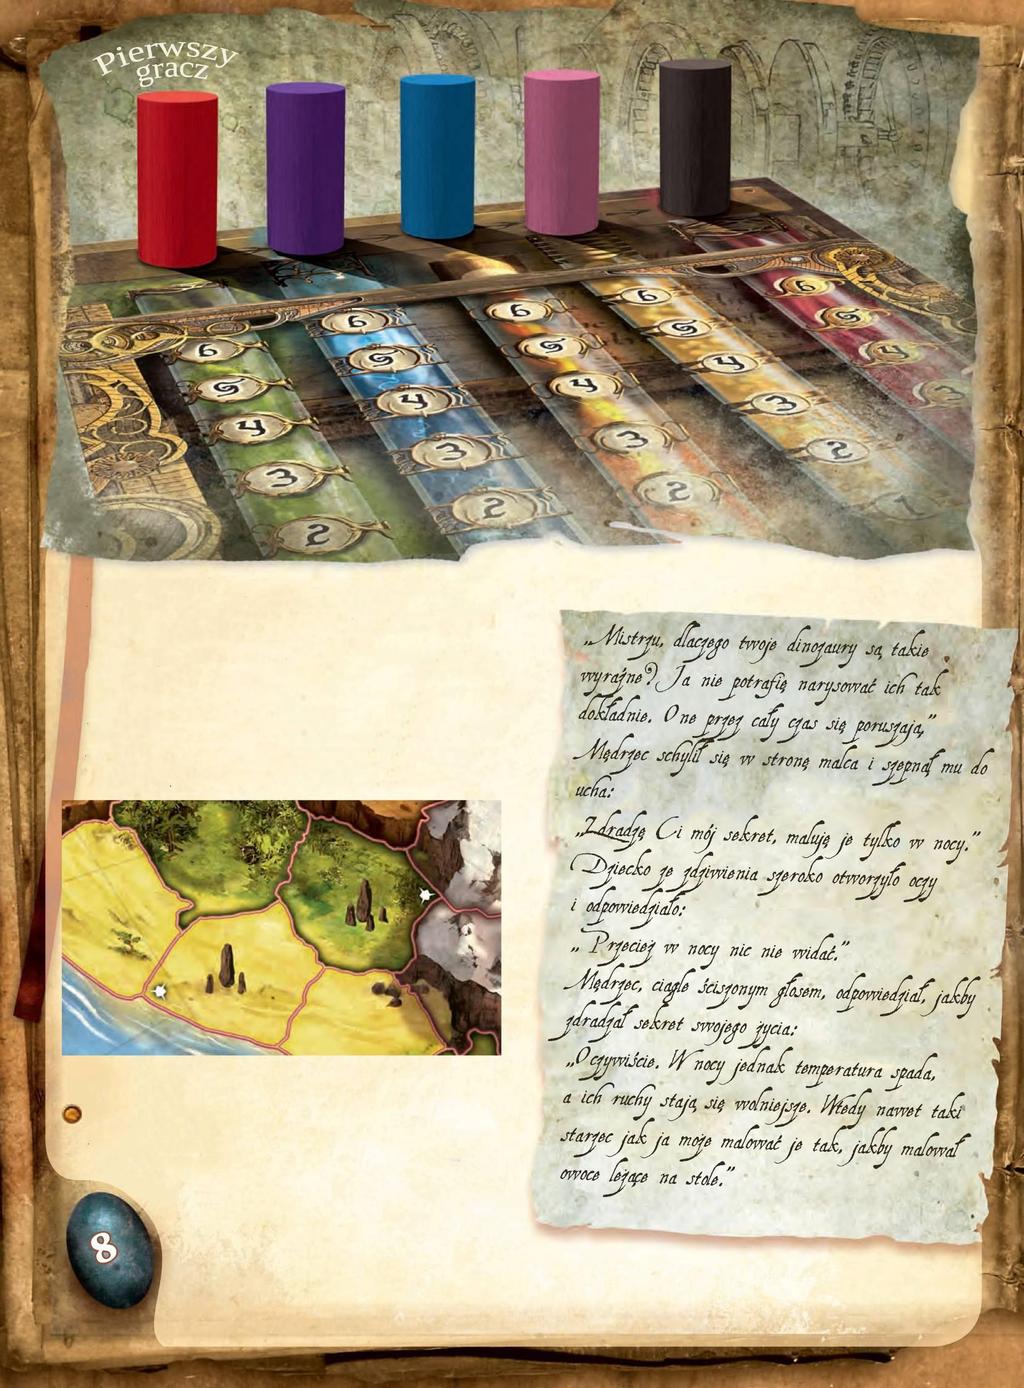 Pierwszy
gracz
6 6 6 6 6
5 5 5 5 5
4 4 4 4 4
3 3 3 3 3
2 2 2 2 1
„Mistrzu, dlaczego twoje dinozaury są takie
wyraźne? Ja nie potrafię narysować ich tak
dokładnie. One przez cały czas się poruszają."
Mędrzec schylił się w stronę malca i szepnął mu do
ucha:
„Zdradzę Ci mój sekret, maluję je tylko w nocy."
Dziecko ze zdziwienia szeroko otworzyło oczy
i odpowiedziało:
„ Przecież w nocy nic nie widać."
Mędrzec, ciągle ściszonym głosem, odpowiedział, jakby
zdradzał sekret swojego życia:
„Oczywiście. W nocy jednak temperatura spada,
a ich ruchy stają się wolniejsze. Wtedy nawet taki
starzec jak ja może malować je tak, jakby malował
owoce leżące na stole."
8